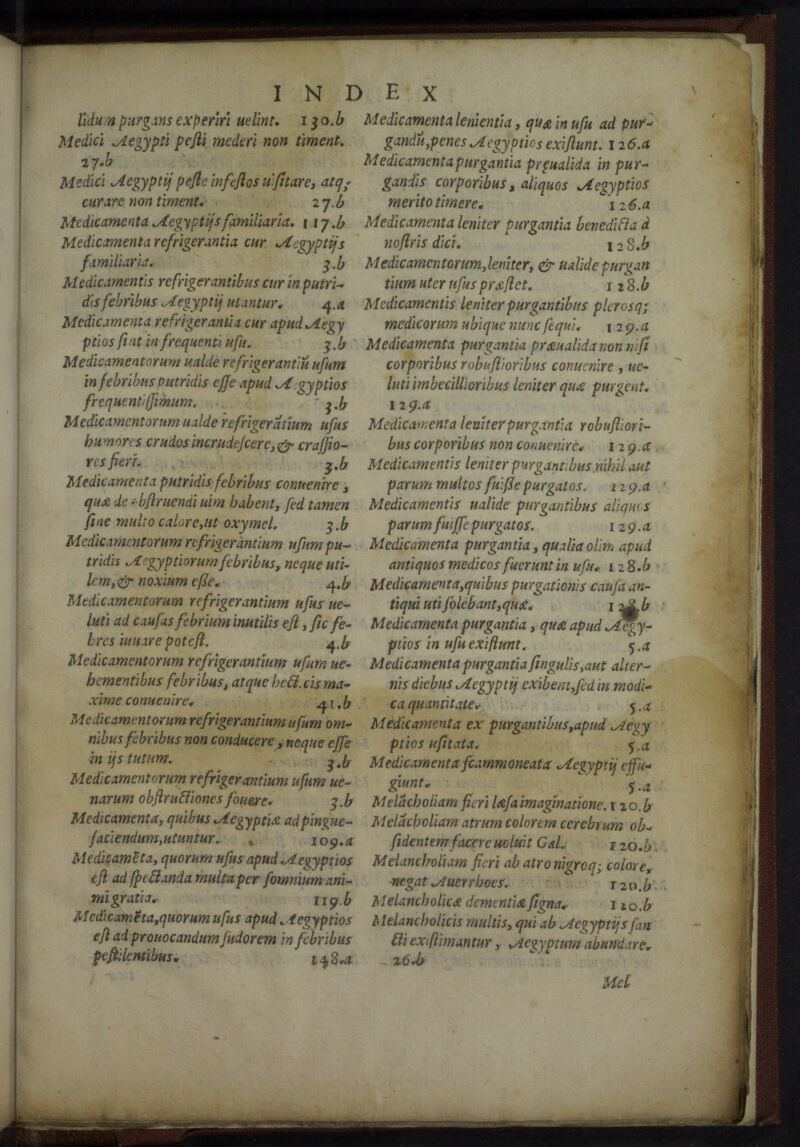 INDEX
lidum purgans experiri uelint. 130.b
Medici Aegypti pesti mederi non timent.
27.b
Medici Aegyptij peste infestos uisitare, atq;
curare non timent. 27.b
Medicamenta Aegyptijs familiaria. 117.b
Medicamenta refrigerantia cur Aegyptijs
familiaria. 3.b
Medicamentis refrigerantibus cur in putri-
dis febribus Aegyptij utantur. 4.a
Medicamenta refrigerantia cur apud Aegy
ptios sint in frequenti usu. 3.b
Medicamentorum ualde refrigerantiū usum
in febribus putridis esse apud Aegyptios
frequentissimum. 3.b
Medicamentorum ualde refrigerātium usus
humores crudos incrudescere, & crassio-
res fieri. 3.b
Medicamenta putridis febribus conuenire,
quæ de obstruendi uim habent, sed tamen
sine multo calore, ut oxymel. 3.b
Medicamentorum refrigerantium usum pu-
tridis Aegyptiorum febribus, neque uti-
lem, & noxium esse. 4.b
Medicamentorum refrigerantium usus ue-
luti ad causas febrium inutilis est, sic fe-
bres iuuare potest. 4.b
Medicamentorum refrigerantium usum ue-
hementibus febribus, atque hecticis ma-
xime conuenire. 41.b
Medicamentorum refrigerantium usum om-
nibus febribus non conducere, neque esse
in ijs tutum. 3.b
Medicamentorum refrigerantium usum ue-
narum obstructiones fouere. 3.b
Medicamenta, quibus Aegyptiæ ad pingue-
faciendum, utuntur. 109.a
Medicamēta, quorum usus apud Aegyptios
est ad spectanda multa per somnium ani-
mi gratia. 119.b
Medicamēta, quorum usus apud Aegyptios
est ad prouocandum sudorem in febribus
pestilentibus. 148.a
Medicamenta lenientia, quæ in usu ad pur-
gandū, penes Aegyptios existunt. 126.a
Medicamenta purgantia pręualida in pur-
gandis corporibus, aliquos Aegyptios
merito timere. 126.a
Medicamenta leniter purgantia benedicta à
nostris dici. 128.b
Medicamentorum, leniter, & ualide purgan
tium uter usus præstet. 128.b
Medicamentis leniter purgantibus plerosq;
medicorum ubique nunc sequi. 129.a
Medicamenta purgantia præualida non nisi
corporibus robustioribus conuenire, ue-
luti imbecillioribus leniter quæ purgent.
129.a
Medicamenta leniter purgantia robustiori-
bus corporibus non conuenire. 129.a
Medicamentis leniter purgantibus nihil aut
parum multos fuisse purgatos. 129.a
Medicamentis ualide purgantibus aliquos
parum fuisse purgatos. 129.a
Medicamenta purgantia, qualia olim apud
antiquos medicos fuerunt in usu. 128.b
Medicamenta, quibus purgationis causa an-
tiqui uti solebant, quæ. 128.b
Medicamenta purgantia, quæ apud Aegy-
ptios in usu existunt. 5.a
Medicamenta purgantia singulis, aut alter-
nis diebus Aegyptij exibent, sed in modi-
ca quantitate. 5.a
Medicamenta ex purgantibus, apud Aegy
ptios usitata. 5.a
Medicamenta scammoneata Aegyptij effu-
giunt. 5.a
Melācholiam fieri læsa imaginatione. 120.b
Melācholiam atrum colorem cerebrum ob-
sidentem facere uoluit Gal. 120.b.
Melancholiam fieri ab atro nigroq; colore,
negat Auerrhoes. 120.b
Melancholicæ dementiæ signa. 120.b
Melancholicis multis, qui ab Aegyptijs san
cti existimantur, Aegyptum abundare.
26.b
Mel